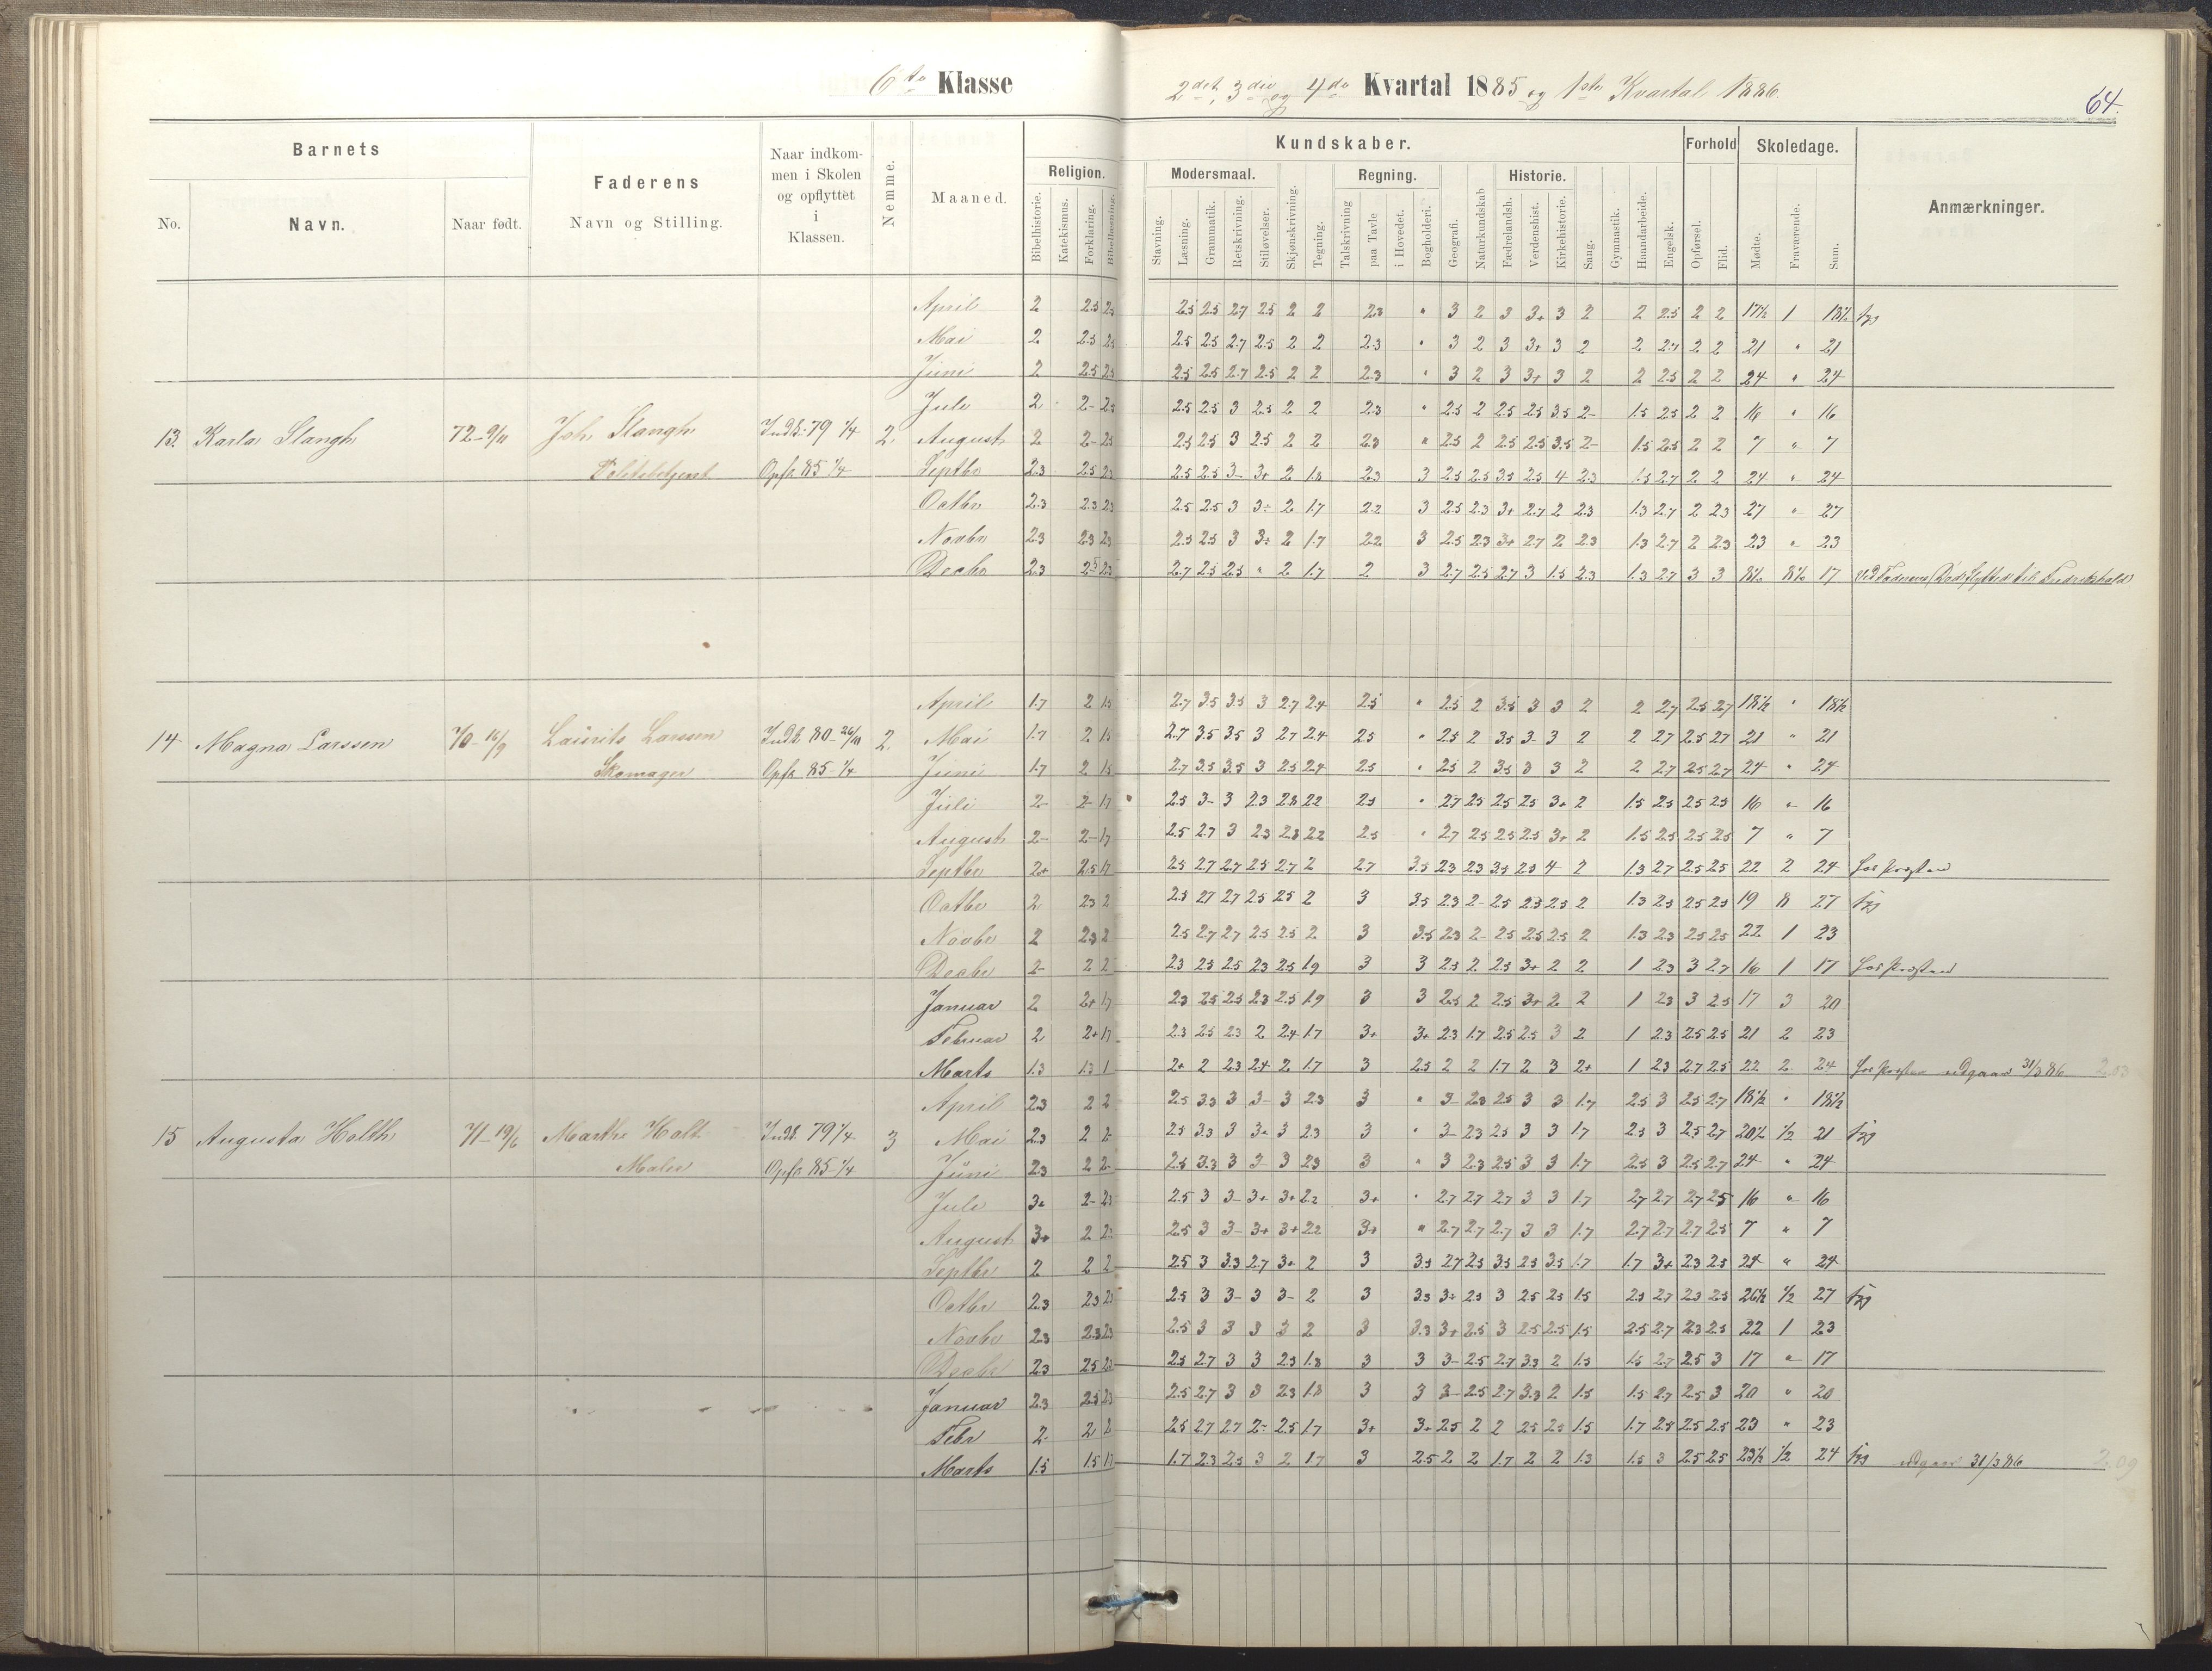 6te Klasse
2det, 3die og 4de Kvartal 1885 og 1ste Kvartal 1886.
64.
Barnets
No.
Navn.
Naar født.
Faderens
Navn og Stilling.
Naar indkom-
men i Skolen
og opflyttet
i
Klassen.
Nemme.
Maaned.
Kundskaber.
Religion.
Bibelhistorie.
Katekismus.
Forklaring.
Bibellæsning.
Modersmaal.
Stavning.
Læsning.
Grammatik.
Retskrivning.
Stiløvelser.
Skjønskrivning.
Tegning.
Regning.
Talskrivning
paa Tavle
i Hovedet.
Bogholderi.
Geografi.
Naturkundskab
Historie.
Fædrelandsh.
Verdenshist.
Kirkehistorie.
Sang.
Gymnastik.
Haandarbeide.
Engelsk.
Forhold
Opførsel.
Flid.
Skoledage.
Mødte.
Fraværende.
Sum.
Anmærkninger.
April 2 2.5 2.5 2.5 2.5 2.7 2.5 2 2 2.3 " 3 2 3 3+ 3 2 2 2.5 2 2 17½ 1 18½
Mai 2 2.5 2.5 2.5 2.5 2.7 2.5 2 2 2.3 " 3 2 3 3+ 3 2 2 2.7 2 2 21 " 21
Juni 2 2.5 2.5 2.5 2.5 2.7 2.5 2 2 2.3 " 3 2 3 3+ 3 2 2 2.5 2 2 24 " 24
Juli 2 2- 2.5 2.5 2.5 3 2.5 2 2 2.3 " 2.5 2 2.5 2.5 3.5 2- 1.5 2.5 2 2 16 " 16
13. Karla Slangh 72-9/11 Joh. Slangh Indk. 79 1/4 2. August 2 2- 2.5 2.5 2.5 3 2.5 2 2 2.3 " 2.5 2 2.5 2.5 3.5 2- 1.5 2.5 2 2 7 " 7
Politibetjent Opfl. 85 1/4 Septbr 2.3 2.5 2.3 2.5 2.5 3- 3+ 2 1.8 2.3 3 2.5 2.5 3.5 2.5 4 2.3 1.5 2.7 2 2 24 " 24
Octbr 2.3 2.3 2.3 2.5 2.5 3 3- 2 1.7 2.2 3 2.5 2.3 3+ 2.7 2 2.3 1.3 2.7 2 2.3 27 " 27
Novbr 2.3 2.3 2.3 2.5 2.5 3 3- 2 1.7 2.2 3 2.5 2.3 3+ 2.7 2 2.3 1.3 2.7 2 2.3 23 " 23
Decbr 2.3 2.5 2.3 2.7 2.5 2.5 " 2 1.7 2 3 2.7 2.5 2.7 3 1.5 2.3 1.3 2.7 3 3 8½ 8½ 17 Ved Faderens Død flyttet til Fredrikshald
April 1.7 2 1.5 2.7 3.5 3.5 3 2.7 2.4 2.5 " 2.5 2 3.5 3 3 2 2 2.7 2.5 2.7 18½ " 18½
14 Magna Larssen 70-16/9 Laurits Larssen Indk. 80-26/10 2. Mai 1.7 2 1.5 2.7 3.5 3.5 3 2.7 2.4 2.5 " 2.5 2 3.5 3 3 2 2 2.7 2.5 2.7 21 " 21
Skomager Opfl. 85-1/4 Juni 1.7 2 1.5 2.7 3.5 3.5 3 2.5 2.4 2.5 " 2.5 2 3.5 3 3 2 2 2.7 2.5 2.7 24 " 24
Juli 2- 2- 1.7 2.5 3- 3 2.3 2.8 2.2 2.5 " 2.7 2.5 2.5 2.5 3+ 2 1.5 2.5 2.5 2.5 16 " 16
August 2- 2- 1.7 2.5 2.7 3 2.3 2.8 2.2 2.5 " 2.7 2.5 2.5 2.5 3+ 2 1.5 2.5 2.5 2.5 7 " 7
Septbr 2+ 2.5 1.7 2.5 2.7 2.7 2.5 2.7 2 2.7 3.5 2.3 2.3 3.5 2.3 4- 2 1.3 2.7 2.5 2.5 22 2 24 hos Præsten
Octbr 2 2.3 2 2.5 2.7 2.7 2.5 2.5 2 3 3.5 2.3 2- 2.5 2.3 2.5 2 1.3 2.3 2.5 2.5 19 8 27
Novbr 2 2.3 2 2.5 2.7 2.7 2.5 2.5 2 3 3.5 2.3 2- 2.5 2.5 2.5 2 1.3 2.3 2.5 2.5 22 1 23
Decbr 2- 2 2 2.3 2.5 2.5 2.3 2.5 1.9 3 3 2.5 2 2.5 3+ 2 2 1 2.3 3 2.7 16 1 17 hos Præsten
Januar 2 2+ 1.7 2.3 2.5 2.5 2.3 2.5 1.9 3 3 2.5 2 2.5 3+ 2 2 1 2.3 3 2.5 17 3 20
Februar 2 2+ 1.7 2.3 2.5 2.3 2 2.4 1.7 3+ 3+ 2.3 1.7 2.5 2.5 3 2 1 2.3 2.5 2.5 21 2 23
Marts 1.3 1.3 1 2+ 2 2.3 2.4 2 1.7 3 2.5 2 2 1.7 2 3 2+ 1 2.3 2.7 2.5 22 2 24 hos Præsten udgaar 31/3 86
April 2.3 2 2 2.5 3.3 3 3- 3 2.3 3 " 3- 2.3 2.5 3 3 1.7 2.5 3 2.5 2.7 18½ " 18½
15 Augusta Holth 71-19/6 Marthe Holt Indk. 79 1/4 3 Mai 2.3 2 2- 2.5 3.3 3 3- 3 2.3 3 " 3- 2.3 2.5 3 3 1.7 2.5 3 2.5 2.7 20½ ½ 21
Maler Opfl. 85 1/4 Juni 2.3 2 2- 2.5 3.3 3 3- 3 2.3 3 " 3 2.3 2.5 3 3 1.7 2.5 3 2.5 2.7 24 " 24
Juli 3+ 2- 2.3 2.5 3 3- 3+ 3+ 2.2 3+ " 2.7 2.7 2.7 3 3 1.7 2.7 2.7 2.7 2.5 16 " 16
August 3+ 2 2- 2.5 3 3- 3+ 3+ 2.2 3+ " 2.7 2.7 2.7 3 3 1.7 2.7 2.7 2.7 2.5 7 " 7
Septbr 2 2 2 2.5 3 3.3 2.7 3+ 2 3 3.3 2.7 2.3 3.5 2.3 3.5 1.7 1.7 3+ 2.3 2.5 24 " 24
Octbr 2.3 2.3 2.3 2.5 3 3- 3 3- 2 3 3.3 3+ 2.5 3 2.5 2.5 1.5 2.5 2.7 2.3 2.5 26½ ½ 27
Novbr 2.3 2.3 2.3 2.5 3 3 3 3 2 3 3.3 3+ 2.5 3 2.5 2.5 1.5 2.5 2.7 2.3 2.5 22 1 23
Decbr 2.3 2.5 2.3 2.5 2.7 3 3 2.3 1.8 3 3 3- 2.5 2.7 3.3 2 1.5 1.5 2.7 2.5 3 17 " 17
Januar 2.3 2.5 2.3 2.5 2.7 3 3 2.3 1.8 3 3 3- 2.5 2.7 3.3 2 1.5 1.5 2.7 2.5 3 20 " 20
Febr 2- 2 2 2.5 2.7 2.7 2- 2.5 1.7 3+ 3+ 2.5 2 2 2.5 2.5 1.5 1.7 2.8 2.5 2.5 23 " 23
Marts 1.5 1.5 1.7 1.7 2.3 2.5 3 2 1.7 3 2.5 2 2 1.7 2 2 1.3 1.5 3 2.5 2.5 23½ ½ 24 udgaar 31/3 86 2.09